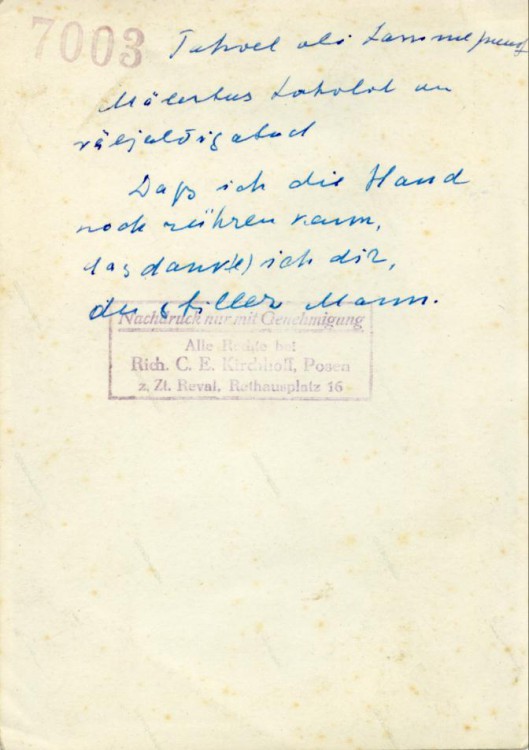 7003 Tahvel oli
Mälestus
väljalõigatud
Daß ich die Hand
noch rühren kann,
das dank(e) ich dir,
du stiller Mann.
Nachdruck nur mit Genehmigung
Alle Rechte bei
Rich. C. E. Kirchhoff, Posen
z. Zt. Reval, Rathausplatz 16